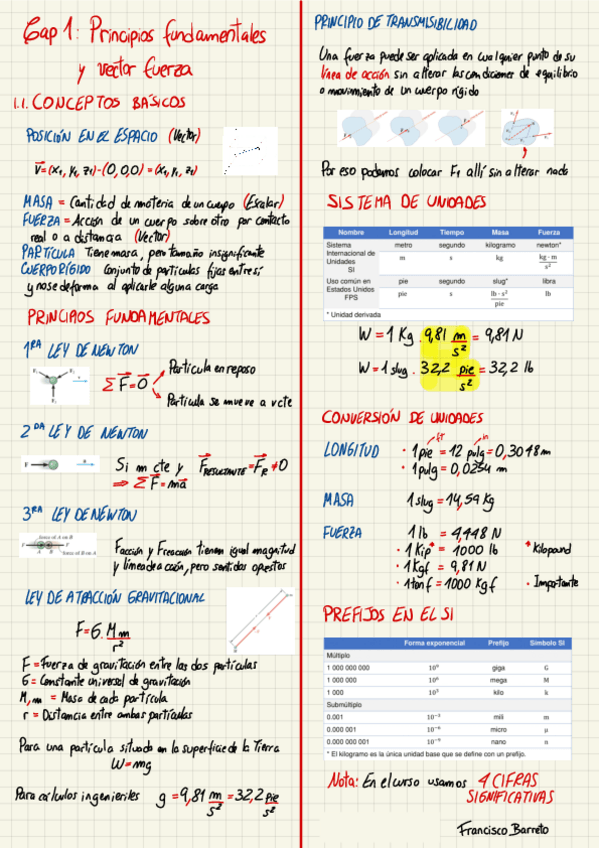 Cap 1: Principios fundamentales
y vector fuerza
1.1. CONCEPTOS BÁSICOS
POSICIÓN EN EL ESPACIO (Vector)
V=(x₁, y₁, z₁)-(0,0,0) = (x₁, y₁, z₁)
MASA = Cantidad de materia de un cuerpo (Escalar)
FUERZA = Acción de un cuerpo sobre otro por contacto
real o a distancia (Vector)
PARTÍCULA Tiene masa, pero tamaño insignificante
CUERPO RÍGIDO Conjunto de partículas fijas entre sí,
y no se deforma al aplicarle alguna carga
PRINCIPIOS FUNDAMENTALES
1RA LEY DE NEWTON
F₂ F₁
F₃
Σ F = 0
Partícula en reposo
Partícula se mueve a v cte
2DA LEY DE NEWTON
F a
Si m cte y FRESULTANTE = FR ≠ 0
⇒ Σ F = ma
3RA LEY DE NEWTON
force of A on B
F F
A B
force of B on A
Facción y Freacción tienen igual magnitud
y línea de acción, pero sentidos opuestos
LEY DE ATRACCIÓN GRAVITACIONAL
F = G. M m / r²
F = Fuerza de gravitación entre las dos partículas
G = Constante universal de gravitación
M, m = Masa de cada partícula
r = Distancia entre ambas partículas
Para una partícula situada en la superficie de la Tierra
W = mg
Para cálculos ingenieriles g = 9,81 m/s² = 32,2 pie/s²
PRINCIPIO DE TRANSMISIBILIDAD
Una fuerza puede ser aplicada en cualquier punto de su
línea de acción sin alterar las condiciones de equilibrio
o movimiento de un cuerpo rígido
Por eso podemos colocar F₁ allí sin alterar nada
SISTEMA DE UNIDADES
Nombre Longitud Tiempo Masa Fuerza
Sistema Internacional de Unidades SI metro segundo kilogramo newton*
m s kg kg · m / s²
Uso común en Estados Unidos FPS pie segundo slug* libra
pie s lb · s² / pie lb
* Unidad derivada
W = 1 Kg . 9,81 m/s² = 9,81 N
W = 1 slug . 32,2 pie/s² = 32,2 lb
CONVERSIÓN DE UNIDADES
ft in
LONGITUD · 1 pie = 12 pulg = 0,3048 m
· 1 pulg = 0,0254 m
MASA 1 slug = 14,59 Kg
FUERZA 1 lb = 4,448 N
· 1 Kip* = 1000 lb * Kilopound
· 1 Kgf = 9,81 N
· 1 tonf = 1000 Kgf · Importante
PREFIJOS EN EL SI
Forma exponencial Prefijo Símbolo SI
Múltiplo
1 000 000 000 10⁹ giga G
1 000 000 10⁶ mega M
1 000 10³ kilo k
Submúltiplo
0.001 10⁻³ mili m
0.000 001 10⁻⁶ micro μ
0.000 000 001 10⁻⁹ nano n
* El kilogramo es la única unidad base que se define con un prefijo.
Nota: En el curso usamos 4 CIFRAS
SIGNIFICATIVAS
Francisco Barreto